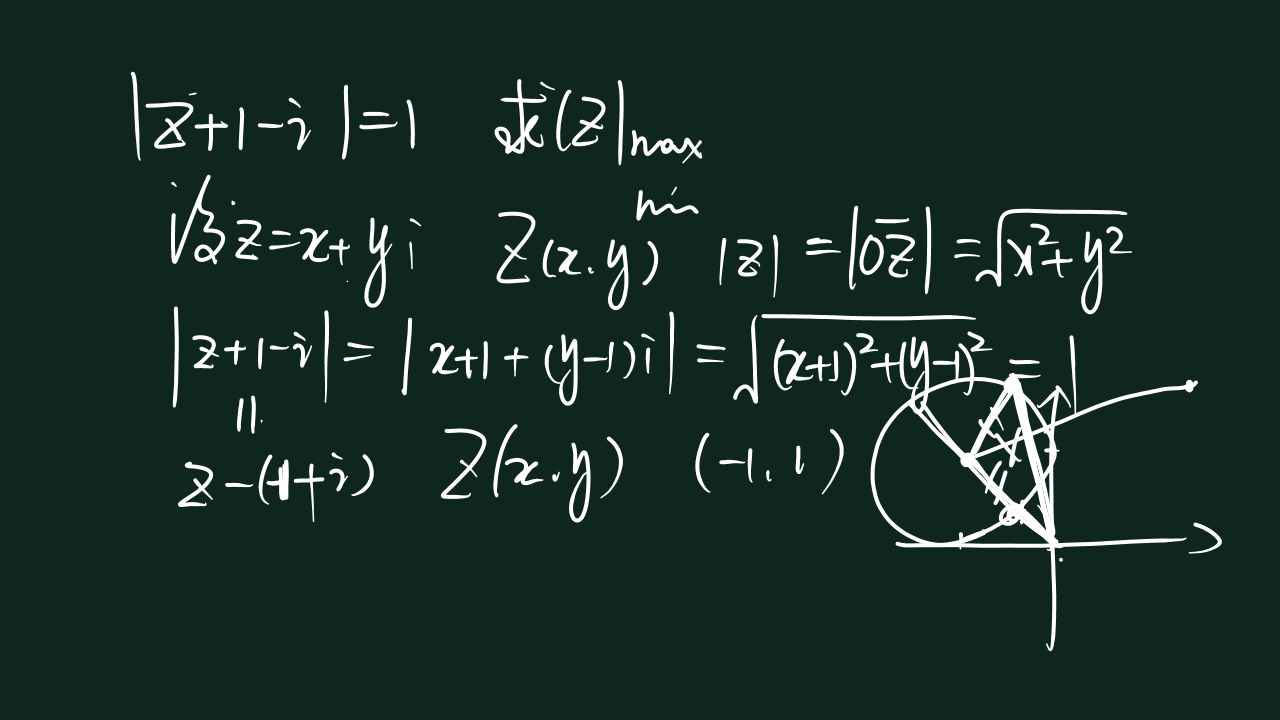 |z+1-i|=1 求|z|max
min
设z=x+yi Z(x.y) |z|=|OZ|=√x²+y²
|z+1-i|=|x+1+(y-1)i|=√(x+1)²+(y-1)²=1
||
z-(-1+i) Z(x.y) (-1.1)